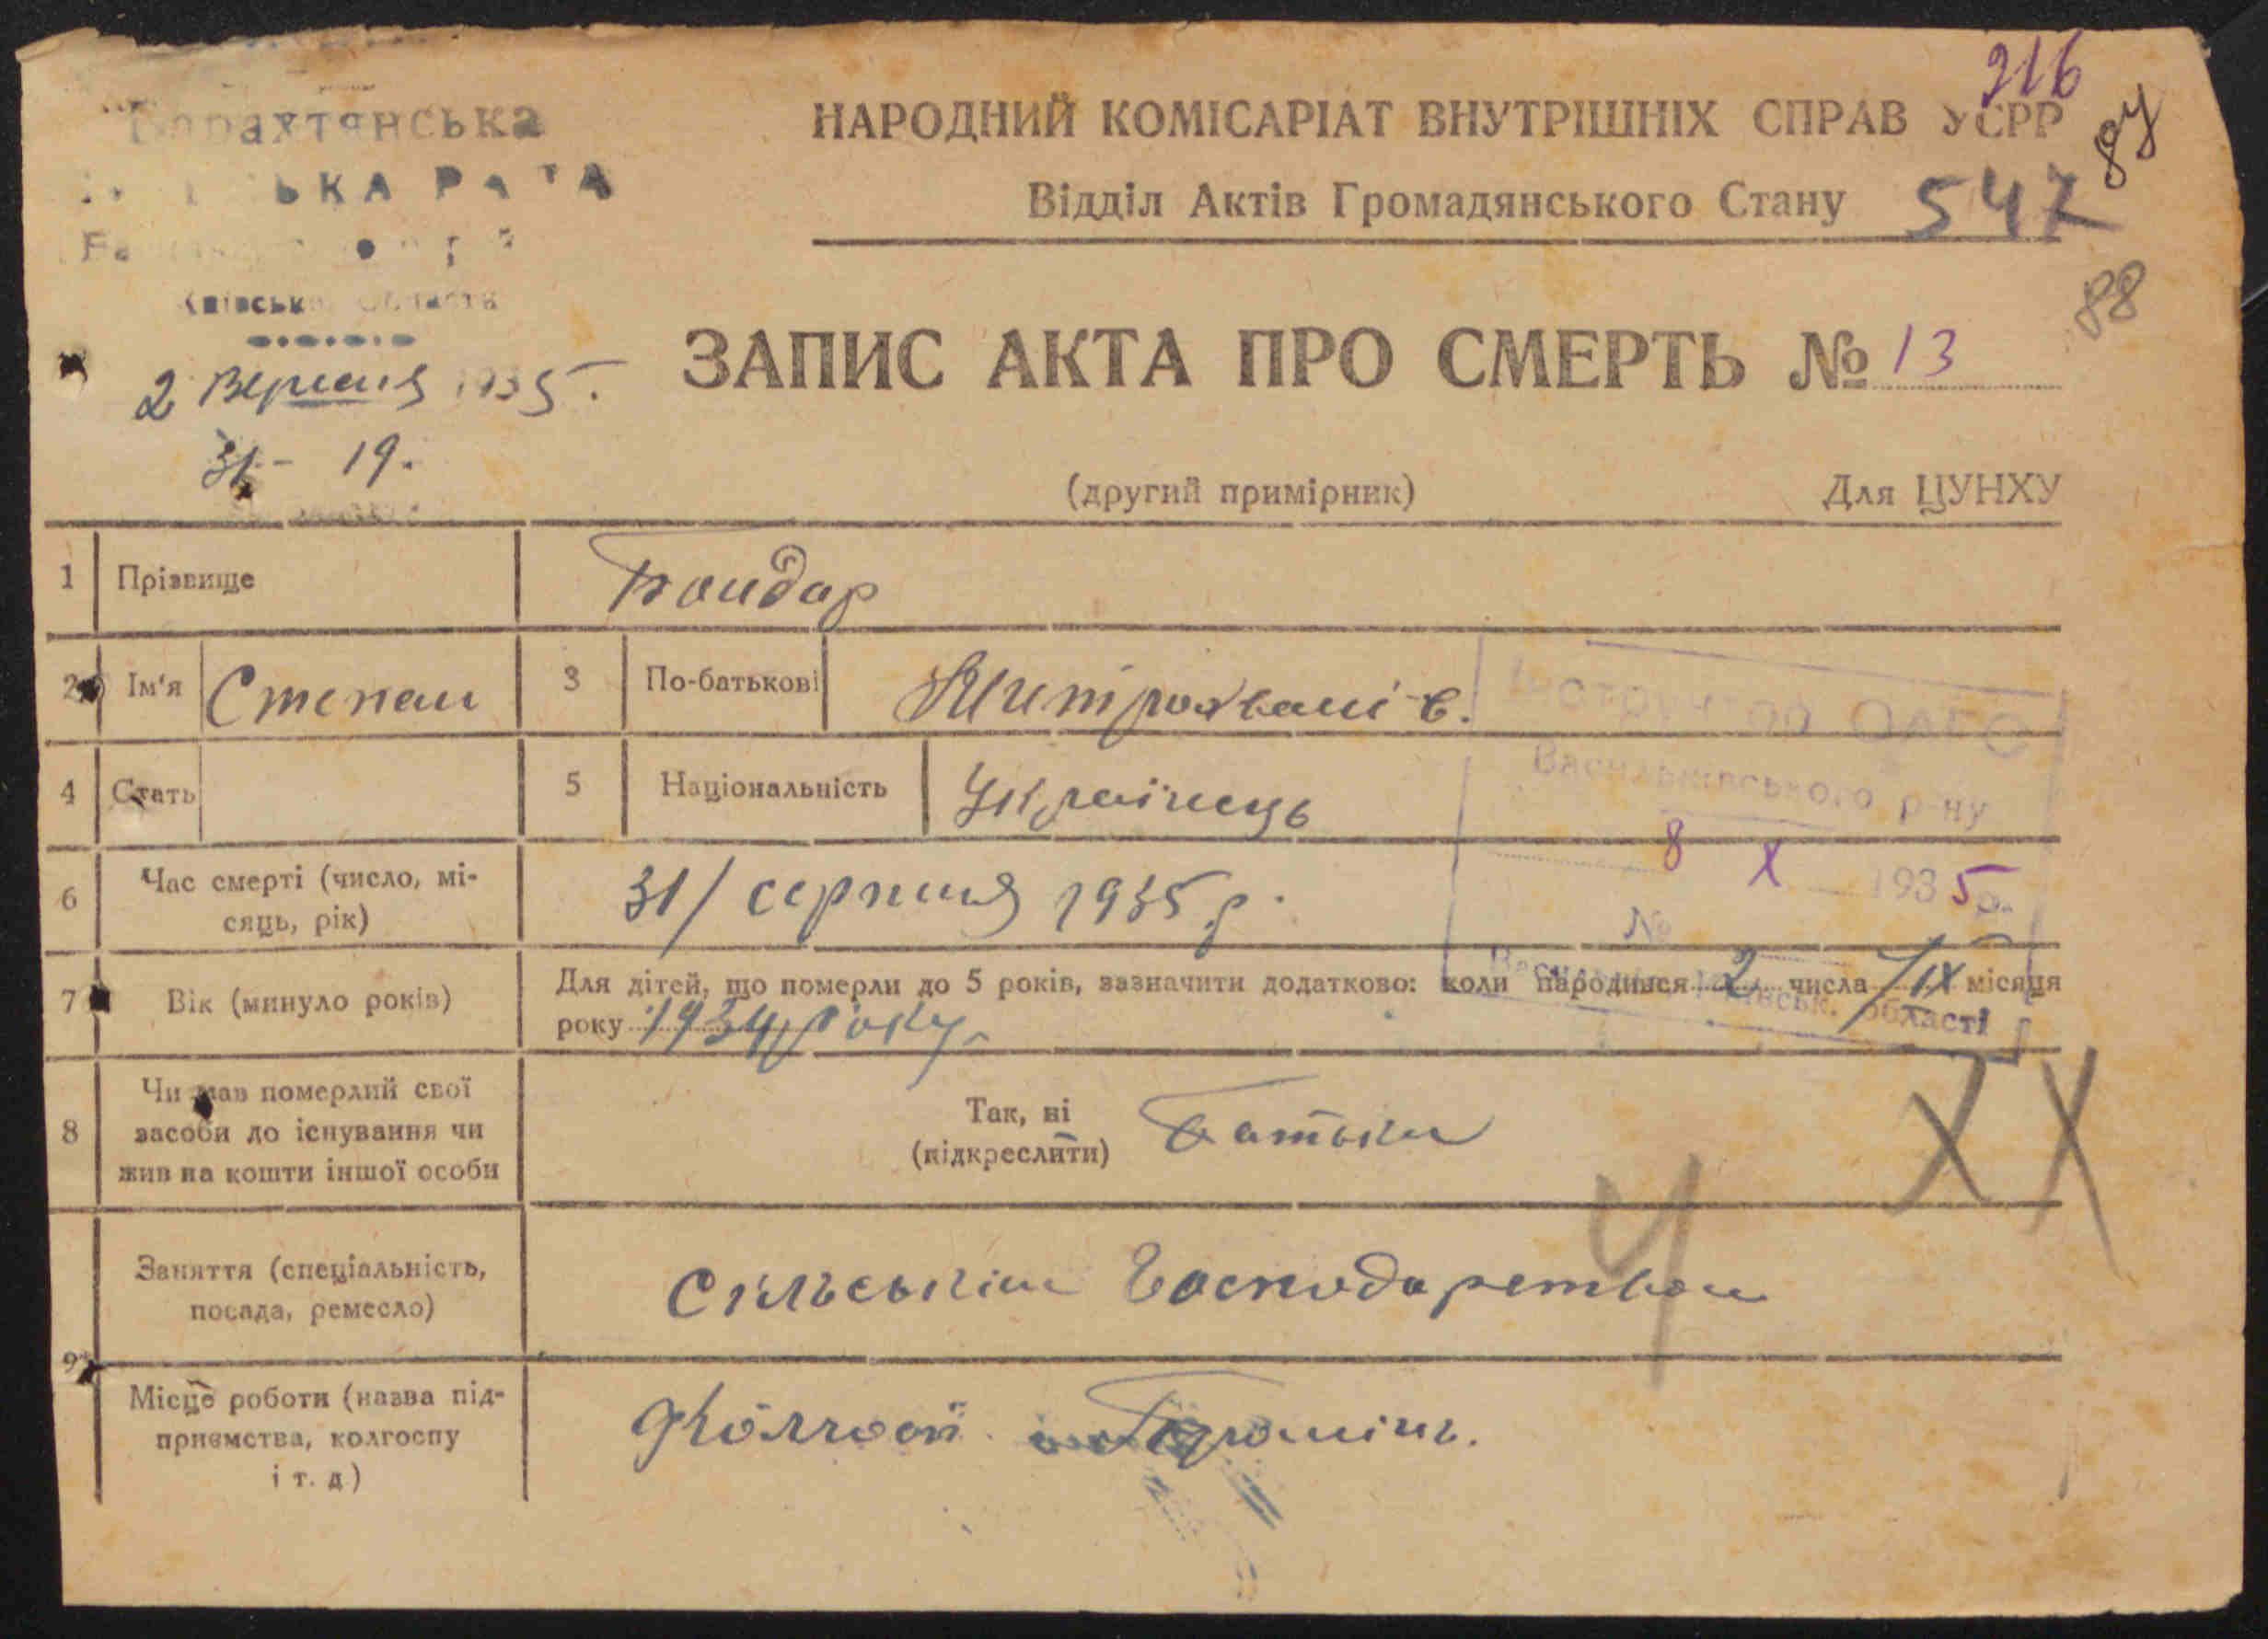 216
Барахтянська
НАРОДНИЙ КОМІСАРІАТ ВНУТРІШНІХ СПРАВ УСРР
Відділ Актів Громадянського Стану 547
88
Київськ Області
ЗАПИС АКТА ПРО СМЕРТЬ № 13
2 Вересня 1935.
31 - 19.
(другий примірник) Для ЦУНХУ
1 Прізвище Бондар
2 Ім'я Степан 3 По-батькові Митрохванів.
Інструктор ОАГС
4 Стать 5 Національність Українець
Васильківського р-ну
6 Час смерті (число, мі-
сяць, рік) 31/ серпня 1935 р.
8 X 1935 р.
№
7 Вік (минуло років) Для дітей, що померли до 5 років, зазначити додатково: коли народився 2 числа /IX місяця
року 1934 року.
області
8 Чи мав померлий свої
засоби до існування чи
жив на кошти іншої особи
Так, ні
(підкреслити) Батьки
XX
Ч
Заняття (спеціальність,
посада, ремесло) Сільським Господарством
9 Місце роботи (назва під-
приємства, колгоспу
і т. д)